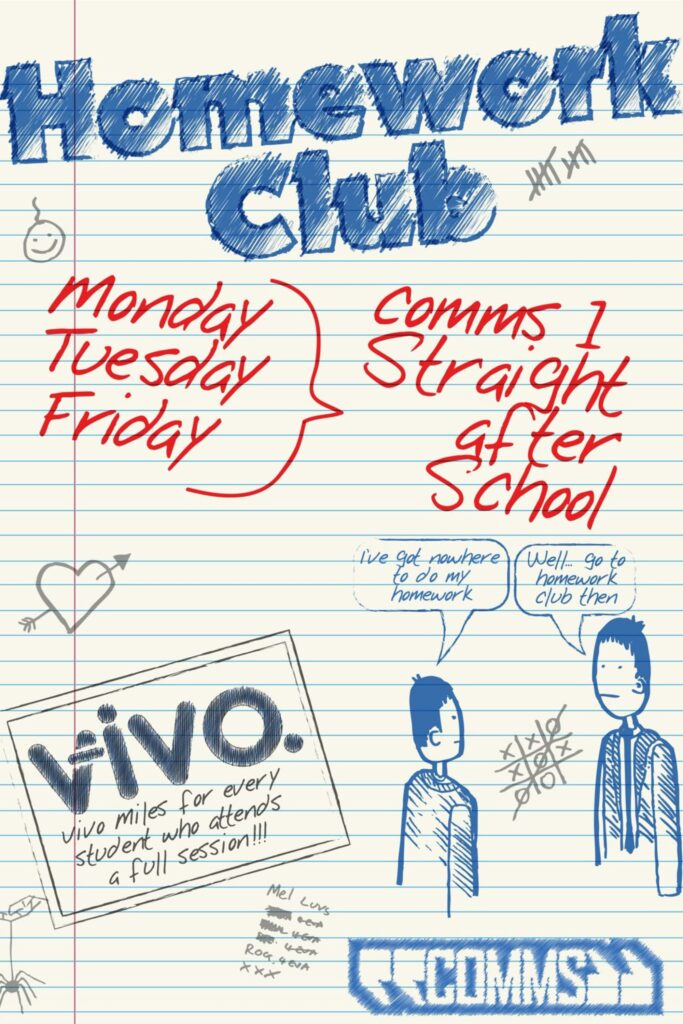 Homework
Club
Monday
Tuesday
Friday
comms 1
Straight
after
School
i've got nowhere
to do my
homework
Well... go to
homework
club then
vivo.
vivo miles for every
student who attends
a full session!!!
Mel Luvs
4 eva
4 eva
4 eva
Rog. 4 eva
xxx
COMMS